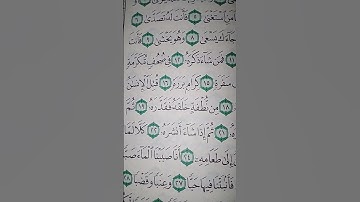 مَنِ ٱسْتَغْنَىٰ ٥ فَأَنتَ لَهُۥ تَصَدَّىٰ ٦
جَآءَكَ يَسْعَىٰ ٨ وَهُوَ يَخْشَىٰ ٩ فَأَنتَ
١١ فَمَن شَآءَ ذَكَرَهُۥ ١٢ فِى صُحُفٍ مُّكَرَّمَةٍ
سَفَرَةٍ ١٥ كِرَامٍۭ بَرَرَةٍ ١٦ قُتِلَ ٱلْإِنسَٰنُ
١٨ مِن نُّطْفَةٍ خَلَقَهُۥ فَقَدَّرَهُۥ ١٩ ثُمَّ
٢١ ثُمَّ إِذَا شَآءَ أَنشَرَهُۥ ٢٢ كَلَّا لَمَّا
إِلَىٰ طَعَامِهِۦٓ ٢٤ أَنَّا صَبَبْنَا ٱلْمَآءَ صَبًّا
فَأَنۢبَتْنَا فِيهَا حَبًّا ٢٧ وَعِنَبًا وَقَضْبًا ٢٨